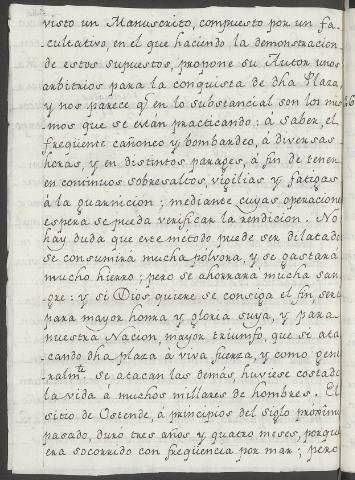 visto un Manuscrito, compuesto por un fa-
cultativo, en el que haciendo la demonstracion
de estos supuestos, propone su Autor unos
arbitrios para la conquista de dha Plaza,
y nos parece qe en lo substancial son los mis-
mos que se están practicando: á saber el
freqüente cañoneo y bombardeo, á diversas
horas, y en distintos parages, á fin de tener
en continuos sobresaltos, vigilias y fatigas
á la guarnicion; mediante cuyas operaciones
espera se pueda verificar la rendicion. No
hay duda que este metodo puede ser dilatado
se consumirá mucha pólvora, y se gastará
mucho hierro; pero se ahorrará mucha san-
gre: y si Dios quiere se consiga el fin, será
para mayor honra y gloria suya, y para
nuestra Nacion, mayor triunfo, que si ata-
cando dha plaza á viva fuerza, y como gene-
ralmte se atacan las demás, huviese costado
la vida á muchos millares de hombres. El
sitio de Ostende, á principios del siglo próximo
pasado, duró tres años y quatro meses, porque
era socorrido con freqüencia por mar; pero